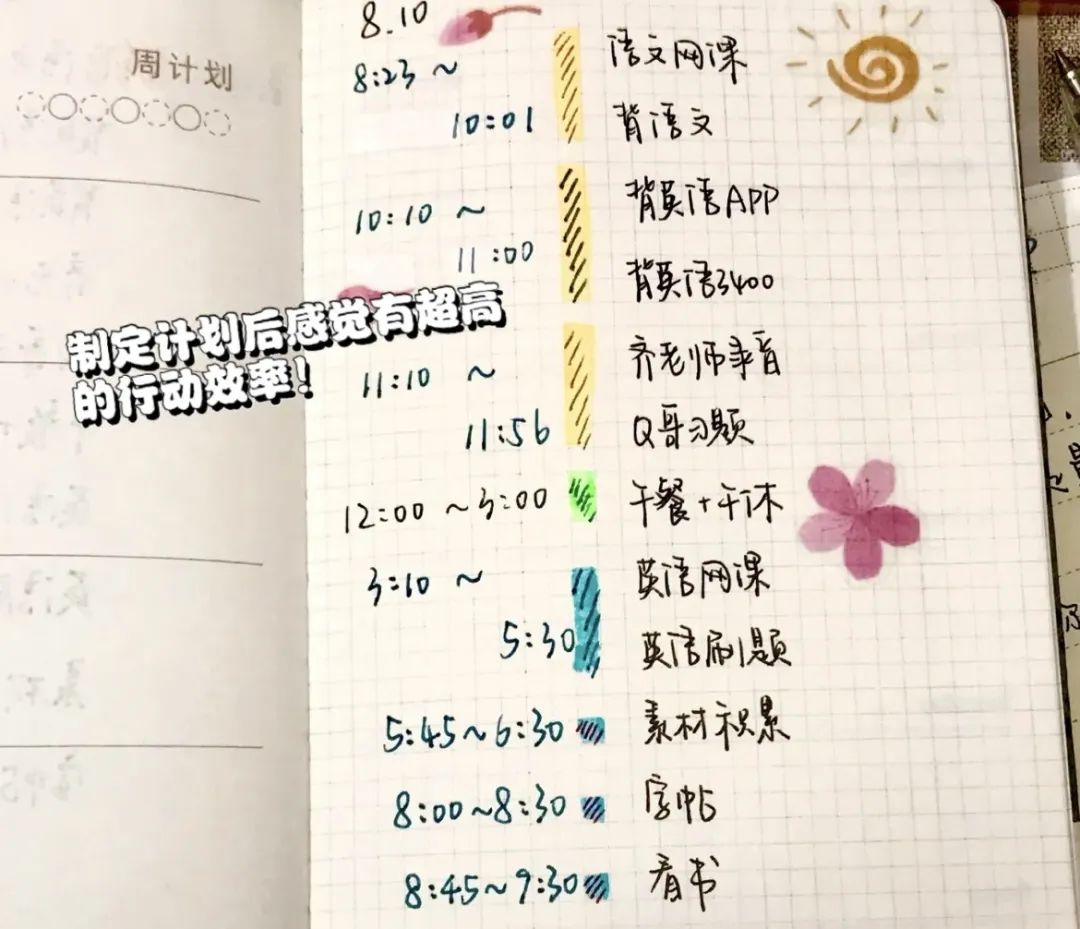 周计划
8.10
8:23 ~
语文网课
10:01
背语文
10:10 ~
背英语APP
11:00
背英语3400
制定计划后感觉有超高
的行动效率!
11:10 ~
齐老师录音
11:56
Q哥习题
12:00 ~3:00
午餐+午休
3:10 ~
英语网课
5:30
英语刷题
5:45~6:30
素材积累
8:00~8:30
字帖
8:45~9:30
看书